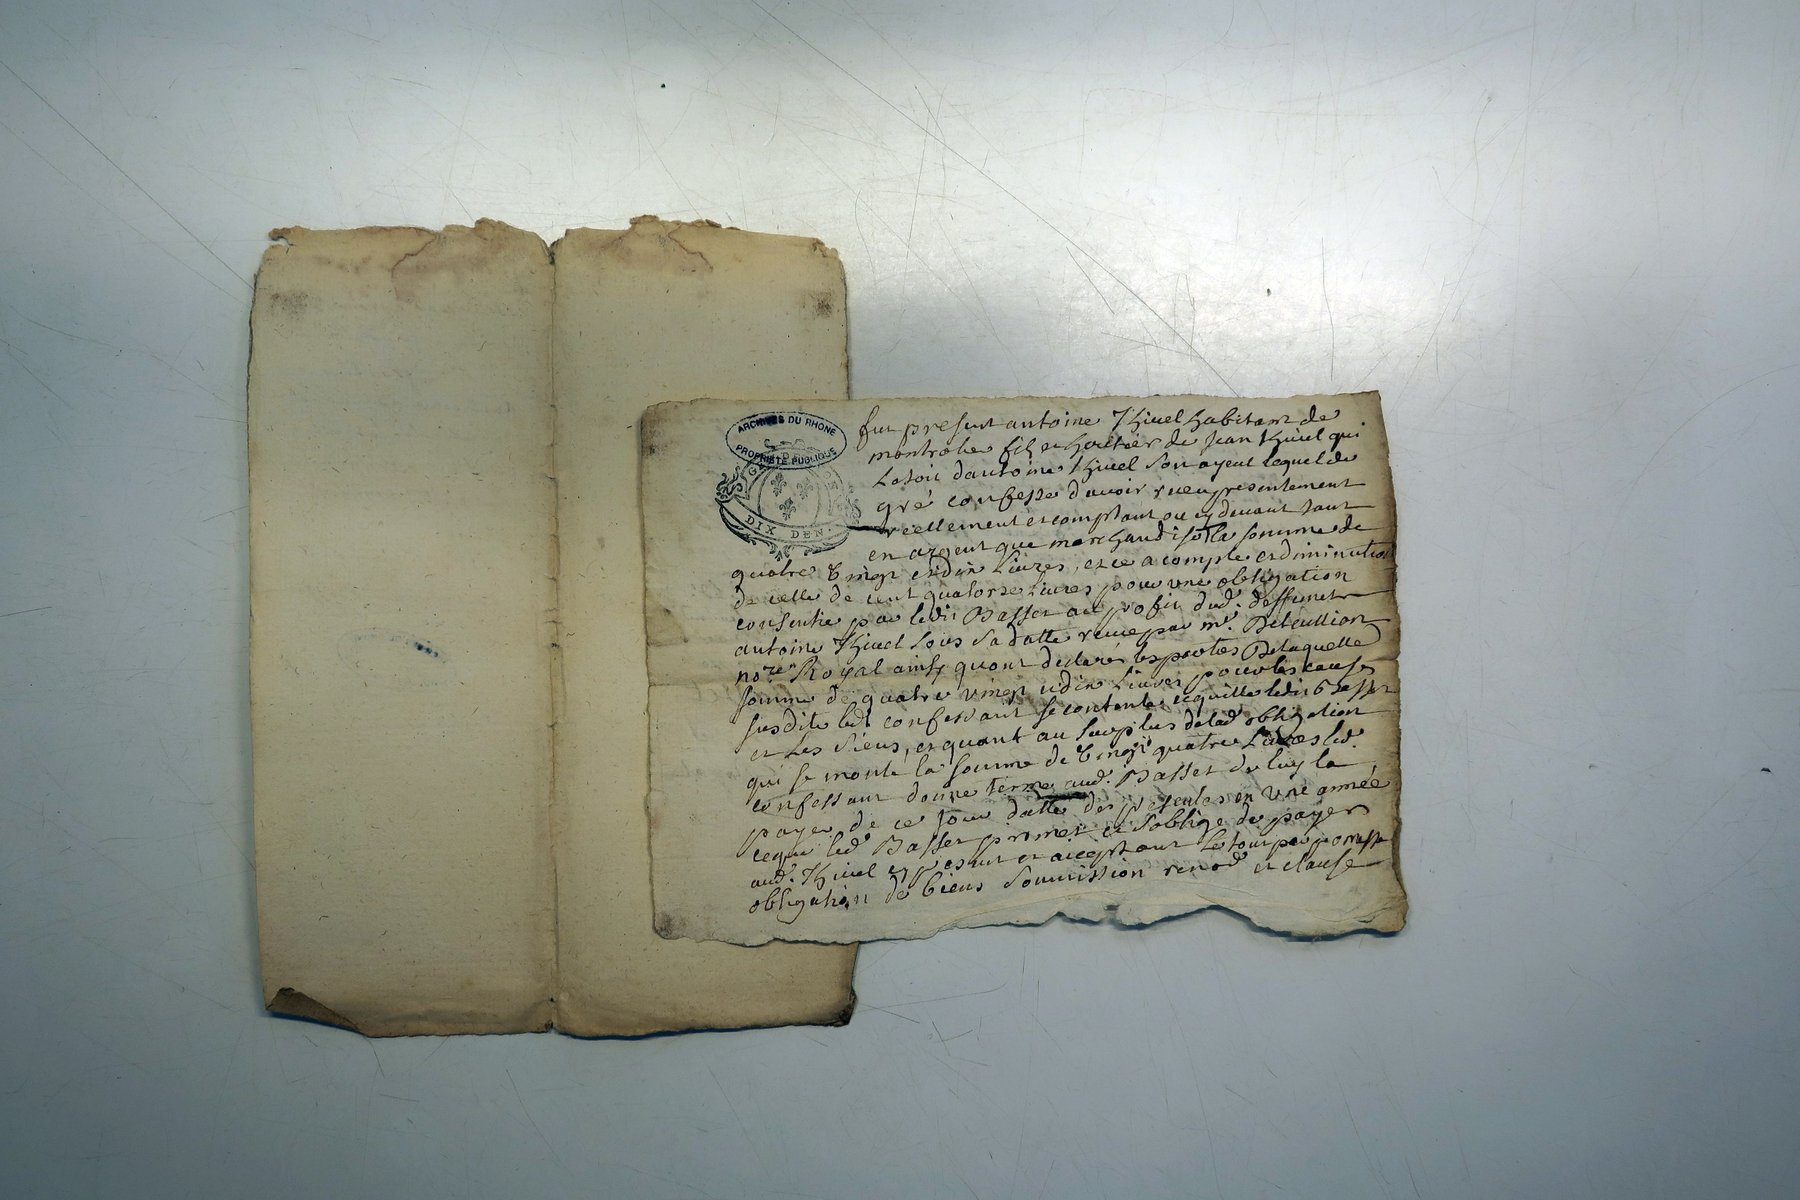 ARCHIVES DU RHONE
PROPRIETE PUBLIQUE
GE DE
DIX DEN
fut present antoine Thivel habitant de
montrotier fils et heritier de Jean thivel qui
Letoit dantoine thivel Son ayeul lequel de
gré confesse d'avoir receu presentement
reellement et comptant ou cy devant tant
en argent que marchandise la somme de
quatre vingt et dix Livres, et ce a compte et diminution
de celle de cent quatorze Livres pour une obligation
consentie par ledit Basset au profit dud. deffunct
antoine Thivel sous sa datte receue par me.
no.re Royal ainsy quont declaré les parties De laquelle
somme de quatre vingt et dix Livres pour les causes
susdite led. confessant se contente et quitte ledit Basset
et Les Siens, et quant au surplus de lad. obligation
qui se monte la somme de vingt quatre Livres led.
confessant donne terme aud. Basset de luy la
payer de ce Jour datte des presentes en une année
ceque led. Basset promet et soblige de payer
aud. Thivel cy present et acceptant Le tout par promesse
obligation de biens soumission renod. et clause